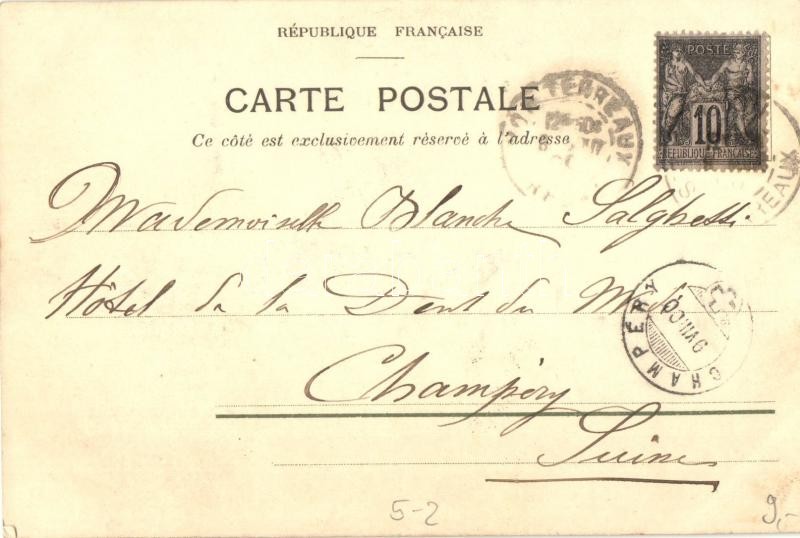 RÉPUBLIQUE FRANÇAISE
CARTE POSTALE
Ce côté est exclusivement réservé à l'adresse
POSTE
10
REPUBLIQUE FRANÇAISE
TERREAUX
TEAUX
Mademoiselle Blanche Salghetti
Hôtel de la Dent du Midi
CHAMPÉRY
Champéry
Suisse
5-2
9,-